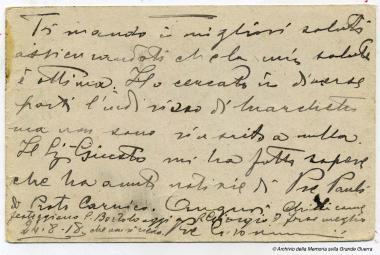 Ti mando i migliori saluti
assicurandoti che la mia salute
è ottima. Ho cercato in diverse
parti l'indirizzo di
ma non sono riuscito a nulla.
Il Sig. Giusto mi ha fatto sapere
che ha avuto notizie di Pre Paul
di Prato Carnico. Auguri
festeggiano S. Bortolo oggi a S. Giorgio
24.8.18,
© Archivio della Memoria sulla Grande Guerra